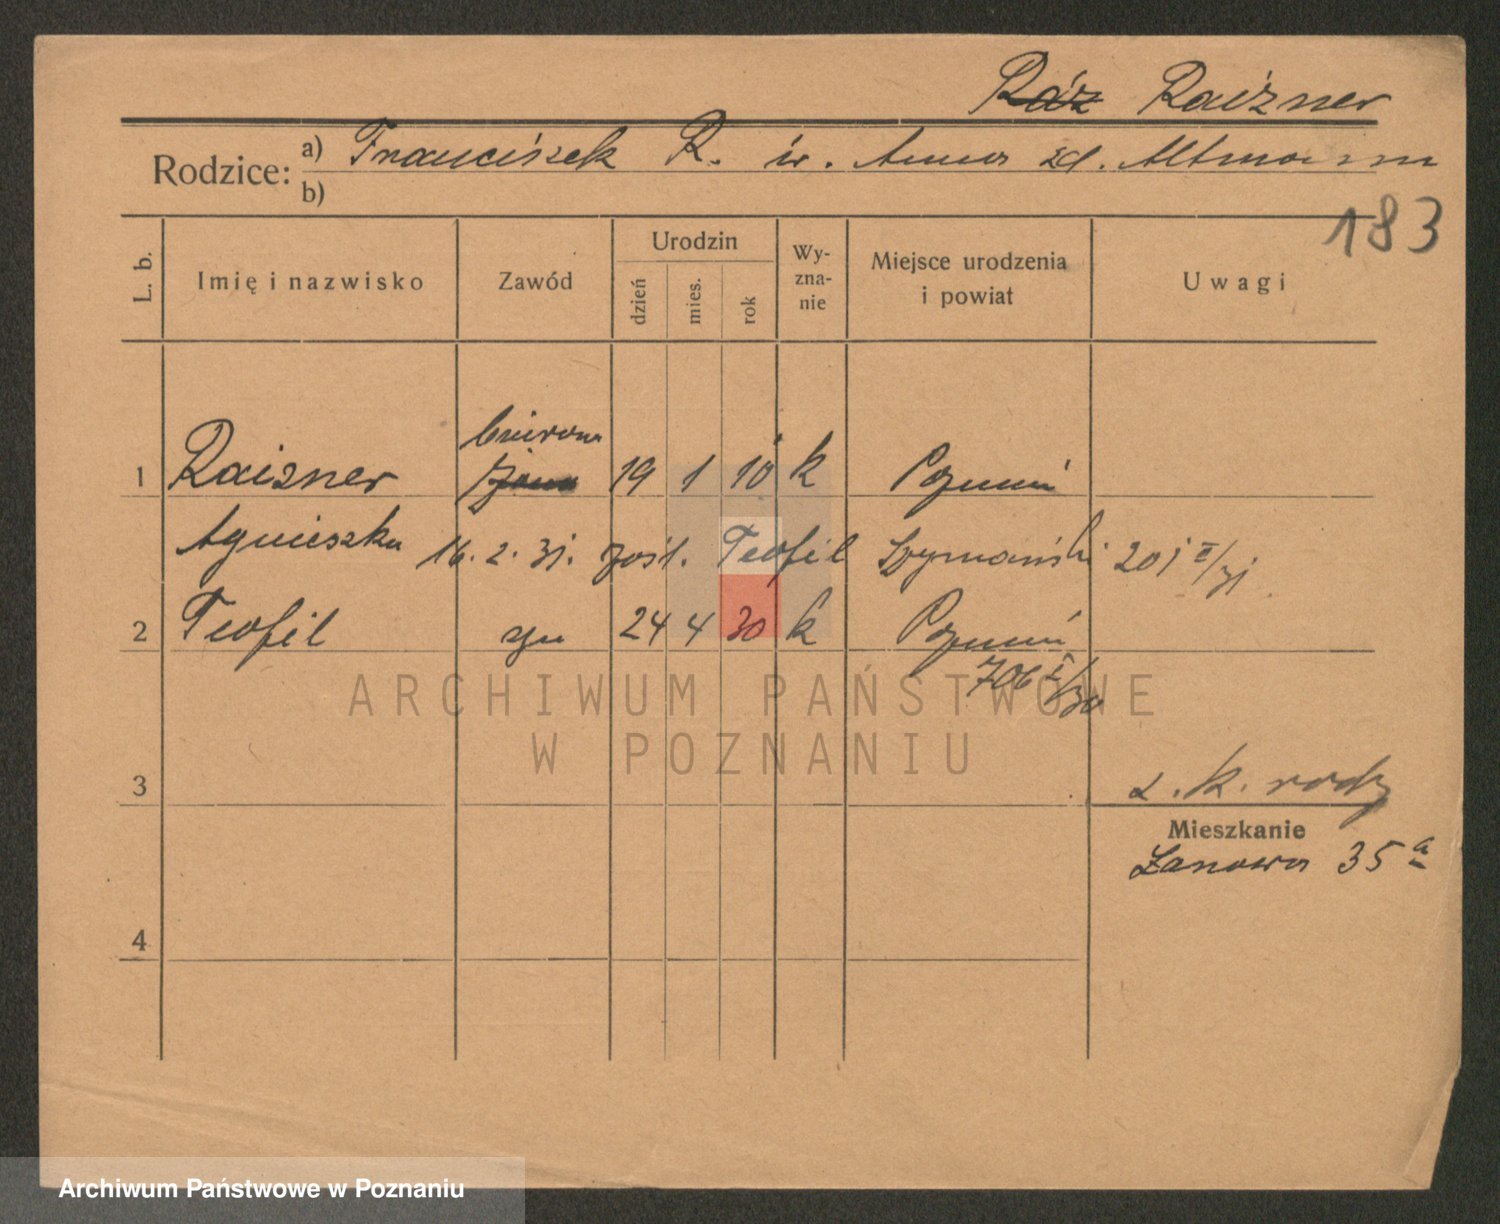 Ráz Raizner
Rodzice: a) Franciszek R. i ż. Anna zd. Altmann
b)
183
L. b.
Imię i nazwisko
Zawód
Urodzin
dzień
mies.
rok
Wy-
zna-
nie
Miejsce urodzenia
i powiat
Uwagi
1 Raizner 19 1 10 k Poznań
Agnieszka 16. 2. 31. zośl. Teofil Szymański 201 II/31
2 Teofil syn 24 4 30 k Poznań
706 I/30
ARCHIWUM PAŃSTWOWE
W POZNANIU
3
z. k. rodz
Mieszkanie
Łanowa 35a
4
Archiwum Państwowe w Poznaniu